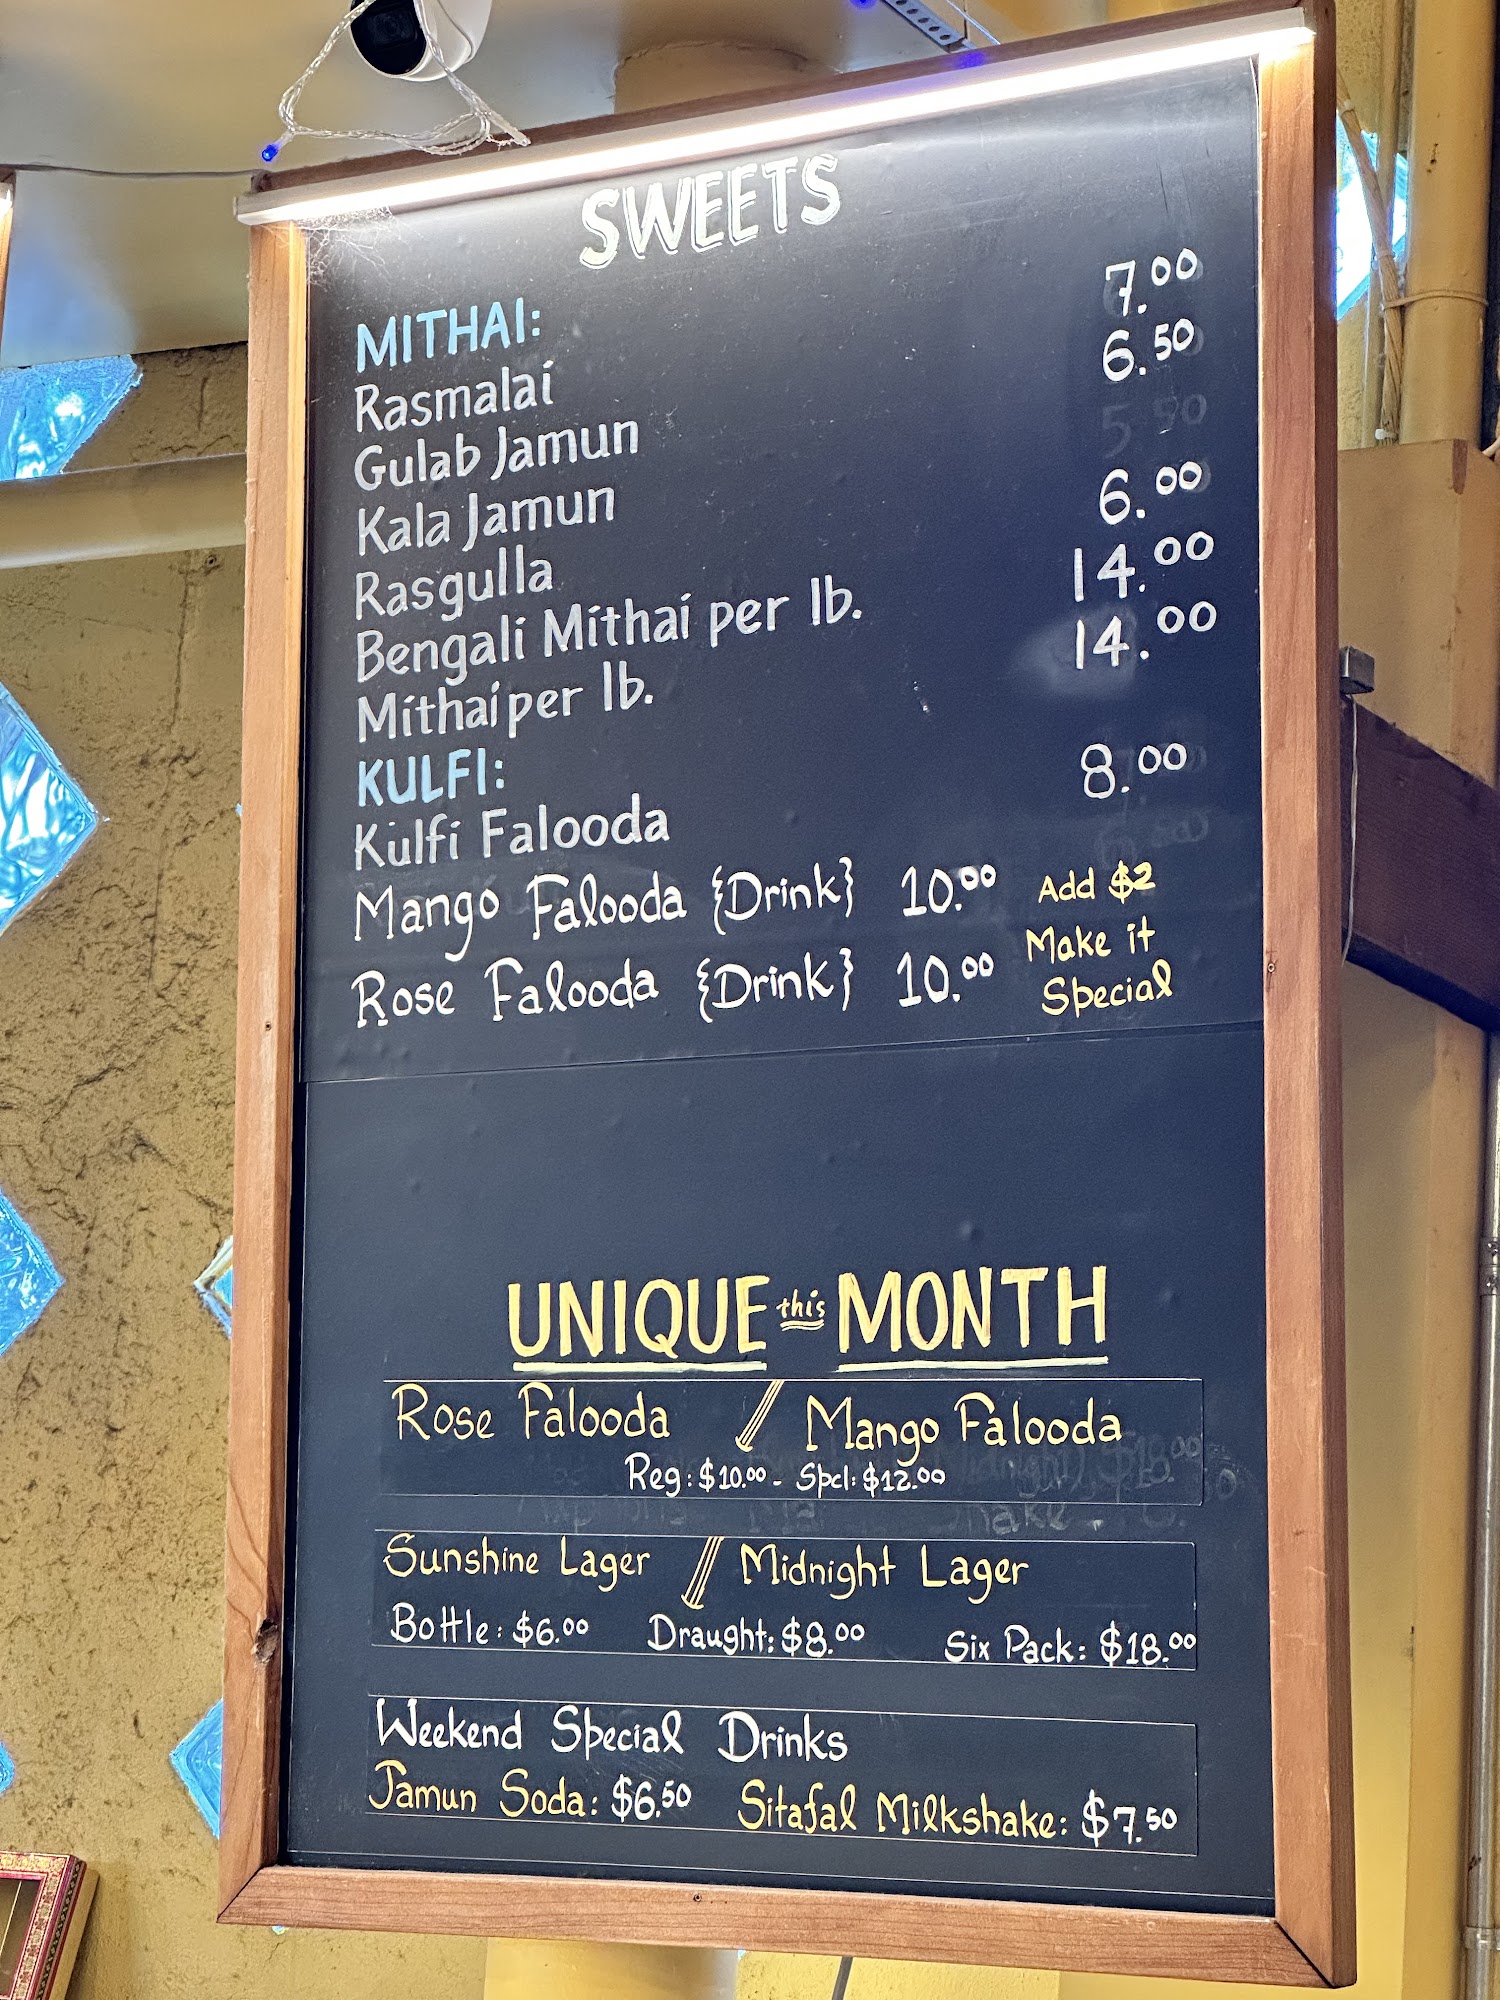 SWEETS
MITHAI:
Rasmalai 7.00
Gulab Jamun 6.50
Kala Jamun
Rasgulla 6.00
Bengali Mithai per lb. 14.00
Mithai per lb. 14.00
KULFI:
Kulfi Falooda 8.00
Mango Falooda {Drink} 10.00 Add $2
Rose Falooda {Drink} 10.00 Make it
Special
UNIQUE this MONTH
Rose Falooda / Mango Falooda
Reg: $10.00 - Spcl: $12.00
Sunshine Lager / Midnight Lager
Bottle: $6.00 Draught: $8.00 Six Pack: $18.00
Weekend Special Drinks
Jamun Soda: $6.50 Sitafal Milkshake: $7.50